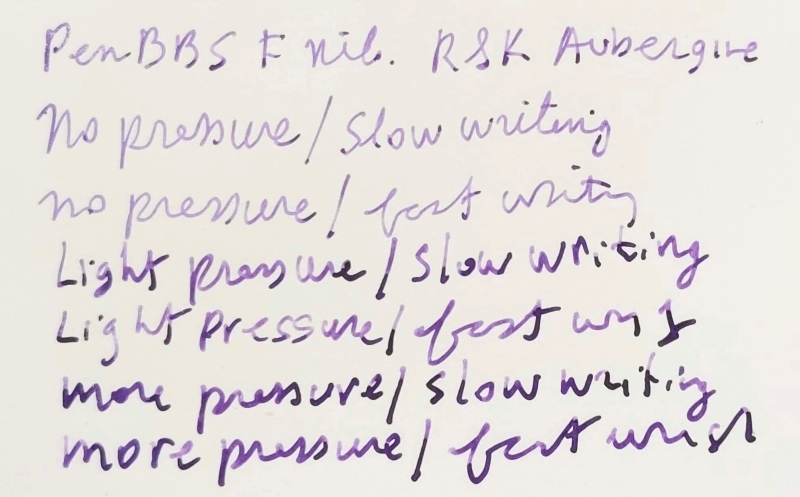 PenBBS F nib. RSK Aubergine
No pressure/Slow writing
no pressure/fast writing
Light pressure/Slow writing
Light Pressure/fast
more pressure/slow writing
more pressure/fast